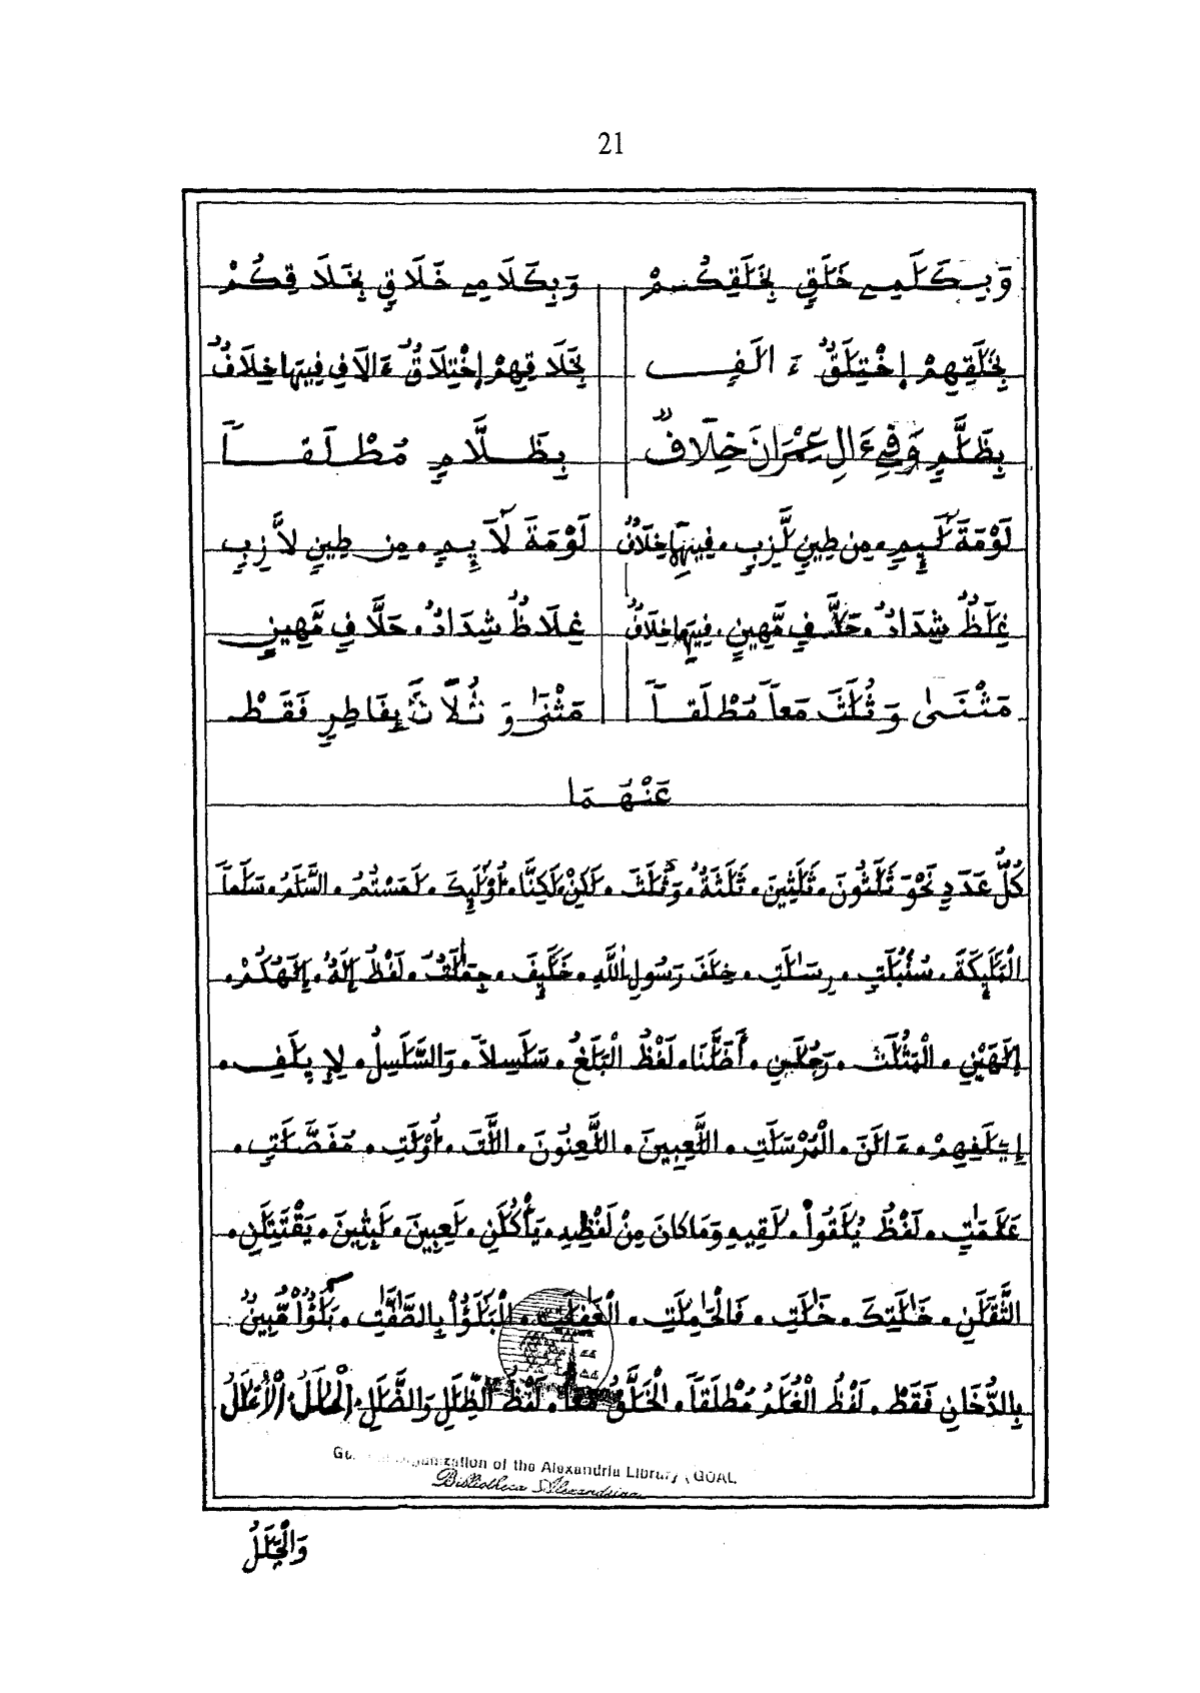 21
وَبِكَلَمِ خَلَقٍ بِخَلَقِكُمْ وَبِكَلَامِ خَلَاقٍ بِخَلَاقِكُمْ
بِخَلَقِهِمْ إِخْتِلَقٌ ءَالَفٍ بِخَلَاقِهِمْ إِخْتِلَاقٌ ءَالَافٍ فِيهَا خِلَافٌ
بِظَلَّمٍ وَفِي ءَالِ عِمْرَانَ خِلَافٌ بِظَلَّامٍ مُطْلَقاً
لَوْمَةَ لَئِمٍ • مِن طِينٍ لَّزِبٍ • فِيهَا خِلَافٌ لَوْمَةَ لَآئِمٍ • مِن طِينٍ لَّازِبٍ
غِلَظٌ شِدَادٌ • حَلَّفٍ مَّهِينٍ • فِيهَا خِلَافٌ غِلَاظٌ شِدَادٌ • حَلَّافٍ مَّهِينٍ
مَثْنَىٰ وَثُلَثَ مَعاً مُطْلَقاً مَثْنَىٰ وَثُلَاثَ بِفَاطِرٍ فَقَطْ
عَنْهُمَا
كُلُّ عَدَدٍ نَحْوَ ثَلَثُونَ • ثَلَثِينَ • ثَلَثَةٌ • وَثُلَثَ • لَكِنْ • لَكِنَّا • أُوْلَئِكَ • لَمَسْتُمُ • السَّلَمَ • سَلَماً
الْمَلَئِكَةَ • سُنْبُلَتٍ • رِسَلَتِ • خِلَفَ رَسُولِ اللَّهِ • خَلَئِفَ • جِمَلَتٌ • لَفْظُ إِلَهُ • إِلَهُكُمْ •
إِلَهَيْنِ • الْمَثُلَتُ • رَجُلَنِ • أَضَلَّنَا • لَفْظُ الْبَلَغُ • سَلَسِلاً • وَالسَّلَسِلُ • لِإِيلَفِ •
إِيلَفِهِمْ • ءَالَنَ • الْمُرْسَلَتِ • اللَّعِبِينَ • اللَّعِنُونَ • اللَّتَ • أُوْلَتِ • مُفَصَّلَتٍ •
عَلَمَتٍ • لَفْظُ يُلَقُواْ • لَقِيهِ وَمَا كَانَ مِنْ لَفْظِهِ • يَأْكُلَنِ • لَعِبِينَ • لَبِثِينَ • يَقْتَتِلَنِ •
الثَّقَلَنِ • خَلَتِكَ • خَلَتِ • فَالْحَمِلَتِ • الْغَفِلَتِ • الْبَلَؤُاْ بِالصَّفَّتِ • بَلَؤُاْ مُّبِينٌ
بِالدُّخَانِ فَقَطْ • لَفْظُ الْغُلَمُ مُطْلَقاً • الْخَلَّقُ مَعاً • لَفْظُ الظِّلَلِ وَالضَّلَلِ الْحَلَلُ الْأَغْلَلُ
General Organization of the Alexandria Library (GOAL)
Bibliotheca Alexandrina
وَالْجَلَلُ